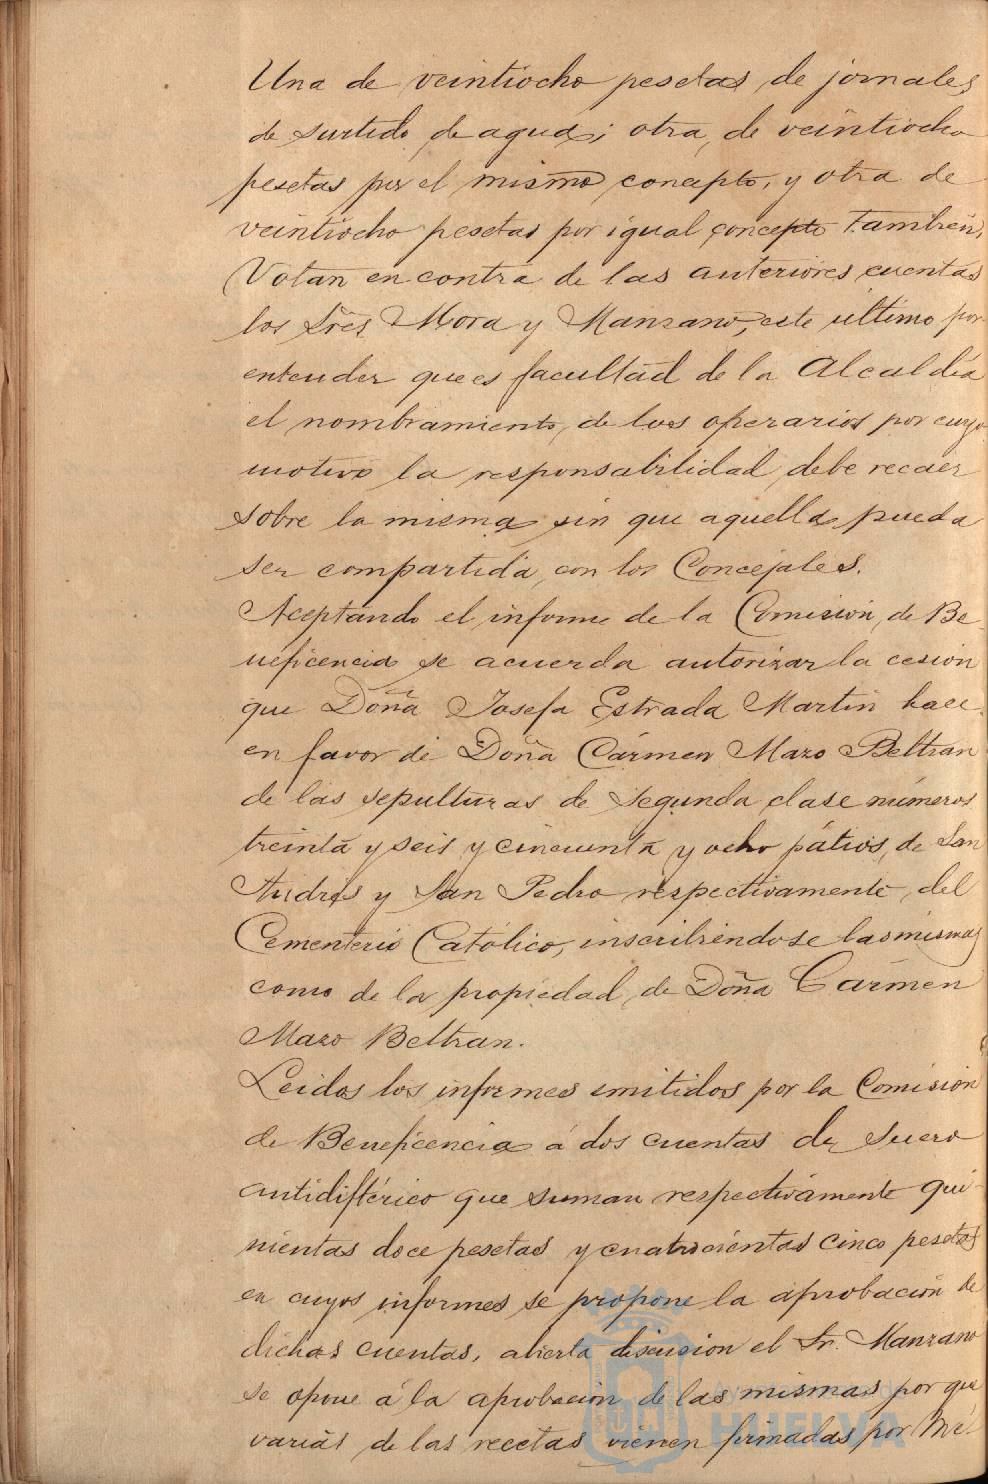 Una de veintiocho pesetas de jornales
de surtido de agua; otra, de veintiocho
pesetas por el mismo concepto, y otra de
veintiocho pesetas por igual concepto tambien,
Votan en contra de las anteriores cuentas
los Sres Mora y Manzano, este último por
entender que es facultad de la Alcaldía
el nombramiento, de los operarios por cuyo
motivo la responsabilidad debe recaer
sobre la misma sin que aquella pueda
ser compartida, con los Concejales.
Aceptando el informe de la Comisión, de Be-
neficencia se acuerda autorizar la cesión
que Doña Josefa Estrada Martin hace
en favor de Doña Cármen Mazo Beltran
de las sepulturas de segunda clase números
treinta y seis y cincuenta y ocho pátios, de San
Andrés y San Pedro respectivamente, del
Cementerio Católico, inscribiéndose las mismas
como de la propiedad, de Doña Cármen
Mazo Beltran.
Leidos los informes emitidos por la Comision
de Beneficencia á dos cuentas de suero
antidiftérico que suman respectivamente qui-
nientas doce pesetas y cuatrocientas cinco pesetas
en cuyos informes se propone la aprobación de
dichas cuentas, abierta discusion el Sr. Manzano
se opone á la aprobación de las mismas por que
varias de las recetas vienen firmadas por Mé-
Ayuntamiento de
HUELVA